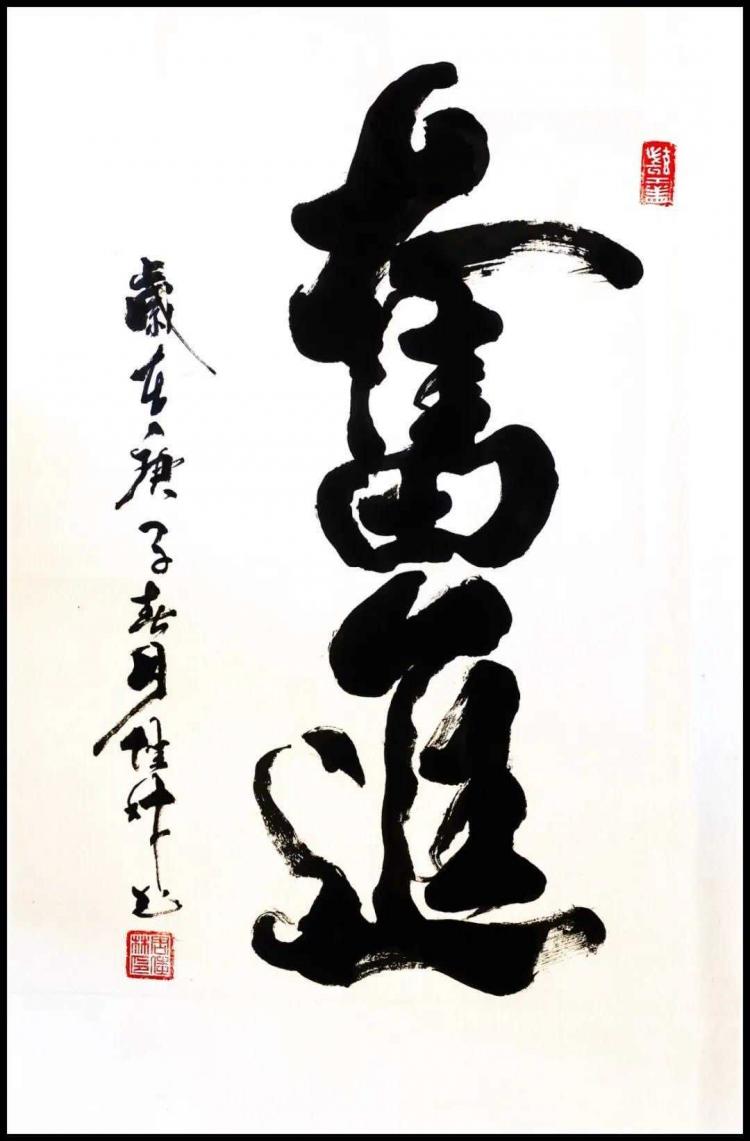 奮進
歲在庚子春月佳林书